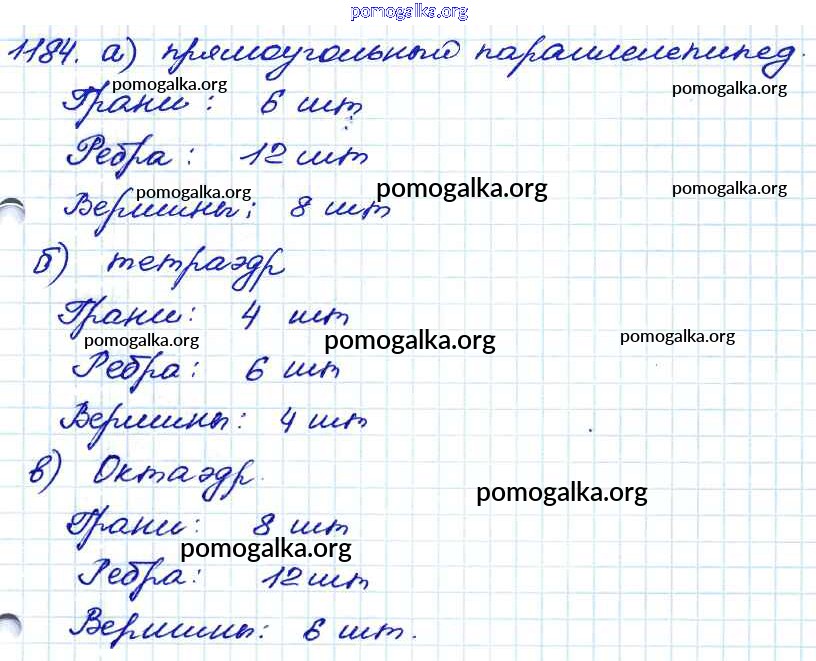 pomogalka.org
1184. а) прямоугольный параллелепипед.
pomogalka.org pomogalka.org
Грани: 6 шт
Ребра: 12 шт
pomogalka.org pomogalka.org pomogalka.org
Вершины: 8 шт
б) тетраэдр
Грани: 4 шт
pomogalka.org pomogalka.org pomogalka.org
Ребра: 6 шт
Вершины: 4 шт
в) Октаэдр.
pomogalka.org
Грани: 8 шт
pomogalka.org
Ребра: 12 шт
Вершины: 6 шт.